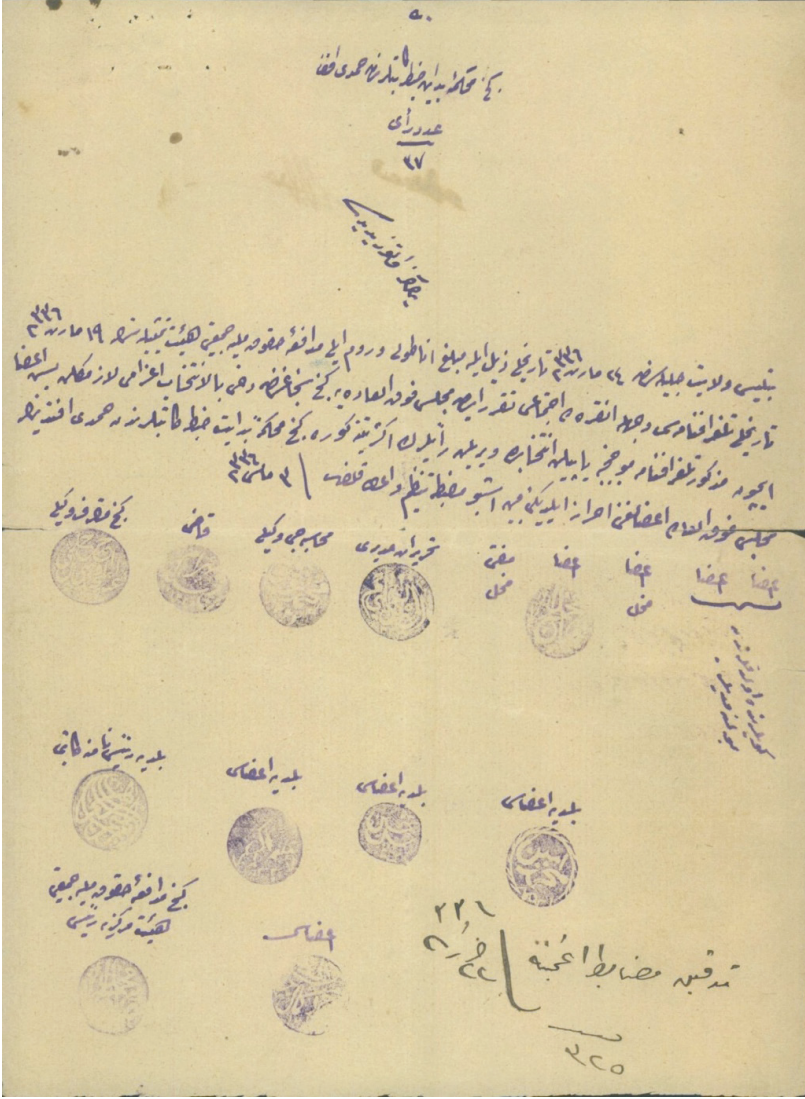 ٥٠
كنج محكمه بدايت ضبط كاتبلرندن حمدى افندى
عدد رأى
٣٧
بتليس ولايت جليله سنك ٢٤ مارت ٣٣٦ تاريخلى ذيل ايله مبلغ اناطولى و روم ايلى مدافعۀ حقوق مليه جمعيتى هيئت تمثيليه سنك ١٩ مارت ٣٣٦
تاريخلى تلغرافنامه سى وجهله انقره ده اجتماعى تقرر ايدن مجلس فوق العاده يه كنج سنجاغندن دخى بالانتخاب اعزامى لازمكلن بش اعضا
ايچون مذكور تلغرافنامه موجبنجه ياپيلان انتخابده ويريلن رأيلرك اكثريتنه كوره كنج محكمۀ بدايت ضبط كاتبلرندن حمدى افندينك
مجلس فوق العاده اعضالغنى احراز ايلديكنى مبين اشبو مضبطه تنظيم واعطا قلندى ٣ مايس ٣٣٦
كنج متصرف وكيلى
قاضى
محاسبه جى وكيلى
تحريرات مديرى
مفتى
محل
اعضا
اعضا
محل
اعضا
اعضا
بلديه رئيسى نامنه كاتبى
بلديه اعضاسى
بلديه اعضاسى
بلديه اعضاسى
كنج مدافعۀ حقوق مليه جمعيتى
هيئت مركزيه رئيسى
اعضاسى
تدقيق مضابط انجمننه
٢٢ حزيران ٣٣٦
٣٢٥